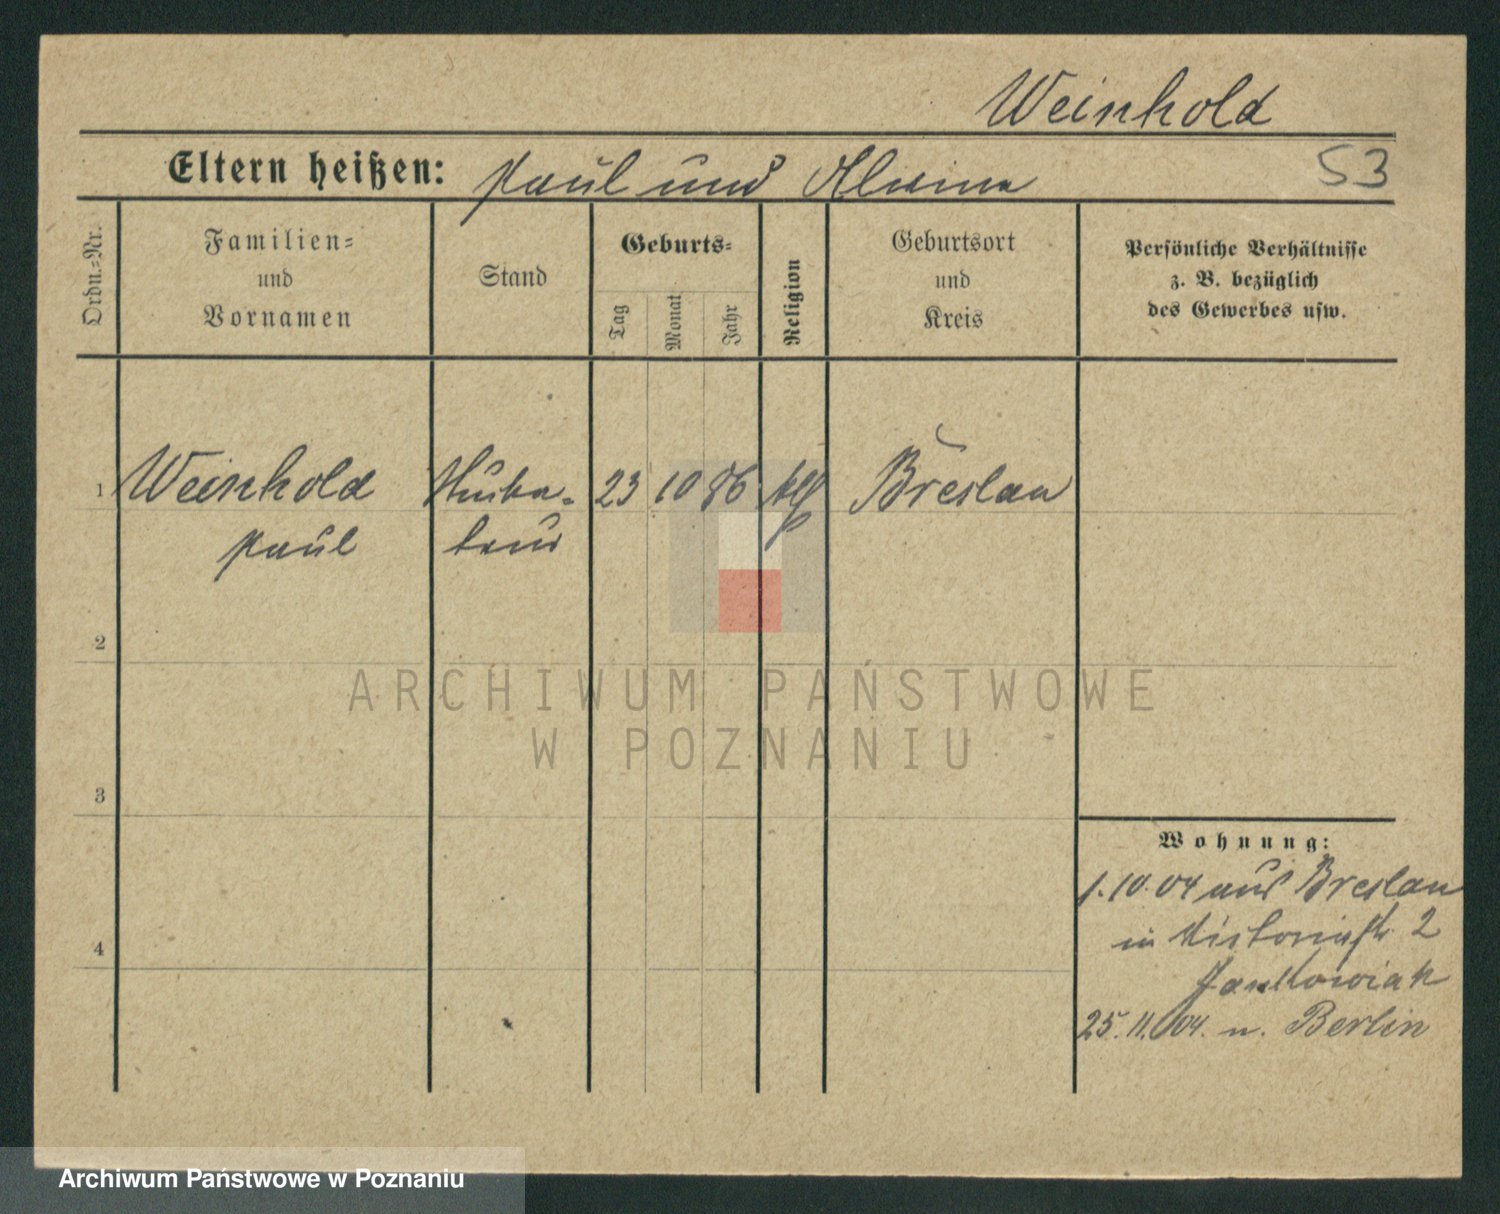 Weinhold
Eltern heißen: Paul und Alwine
53
Ordn.-Nr.
Familien-
und
Vornamen
Stand
Geburts-
Tag
Monat
Jahr
Religion
Geburtsort
und
Kreis
Persönliche Verhältnisse
z. B. bezüglich
des Gewerbes usw.
1 Weinhold 23 10 86 Breslau
Paul
2
ARCHIWUM PAŃSTWOWE
W POZNANIU
3
Wohnung:
1.10.04 aus Breslau
in Victoriastr. 2
4
Jankowiak
25.11.04. n. Berlin
Archiwum Państwowe w Poznaniu